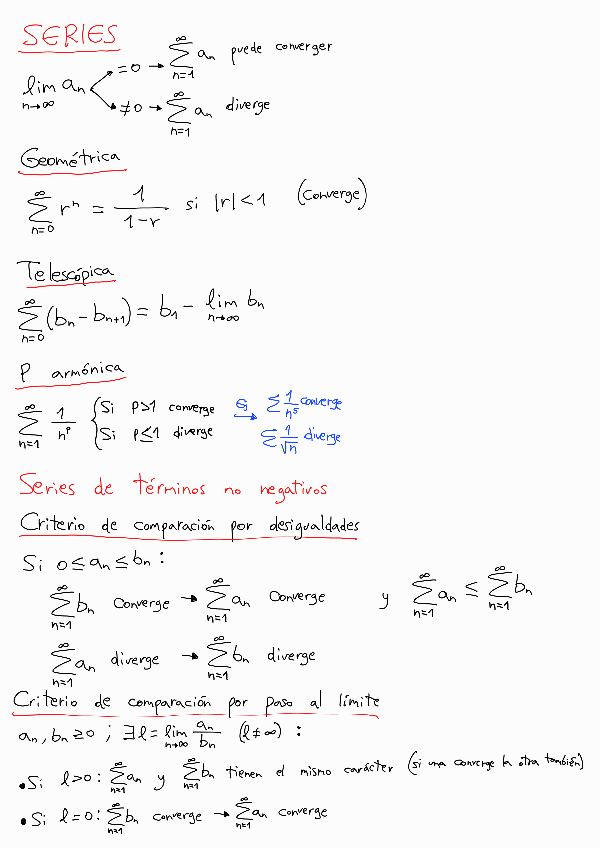 SERIES
lim_{n→∞} a_n =0 → ∑_{n=1}^{∞} a_n puede converger
≠0 → ∑_{n=1}^{∞} a_n diverge
Geométrica
∑_{n=0}^{∞} r^n = 1/(1-r) si |r|<1 (Converge)
Telescópica
∑_{n=0}^{∞} (b_n - b_{n+1}) = b_1 - lim_{n→∞} b_n
P armónica
∑_{n=1}^{∞} 1/n^p { Si P>1 converge Ej → ∑ 1/n^5 converge
Si P≤1 diverge ∑ 1/√n diverge
Series de términos no negativos
Criterio de comparación por desigualdades
Si 0≤a_n≤b_n:
∑_{n=1}^{∞} b_n Converge → ∑_{n=1}^{∞} a_n Converge y ∑_{n=1}^{∞} a_n ≤ ∑_{n=1}^{∞} b_n
∑_{n=1}^{∞} a_n diverge → ∑_{n=1}^{∞} b_n diverge
Criterio de comparación por paso al límite
a_n, b_n ≥0 ; ∃ l = lim_{n→∞} a_n/b_n (l≠∞) :
•Si l>0: ∑_{n=1}^{∞} a_n y ∑_{n=1}^{∞} b_n tienen el mismo carácter (si una converge la otra también)
•Si l=0: ∑_{n=1}^{∞} b_n converge → ∑_{n=1}^{∞} a_n converge